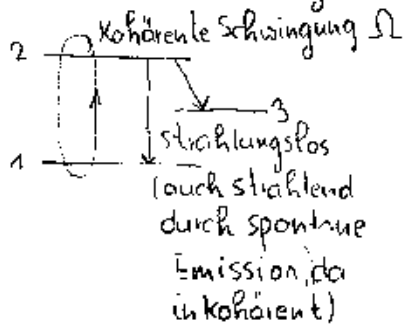 Kohärente Schwingung Ω
2
3
1
strahlungslos
(auch strahlend
durch spontane
Emission, da
inkohärent)